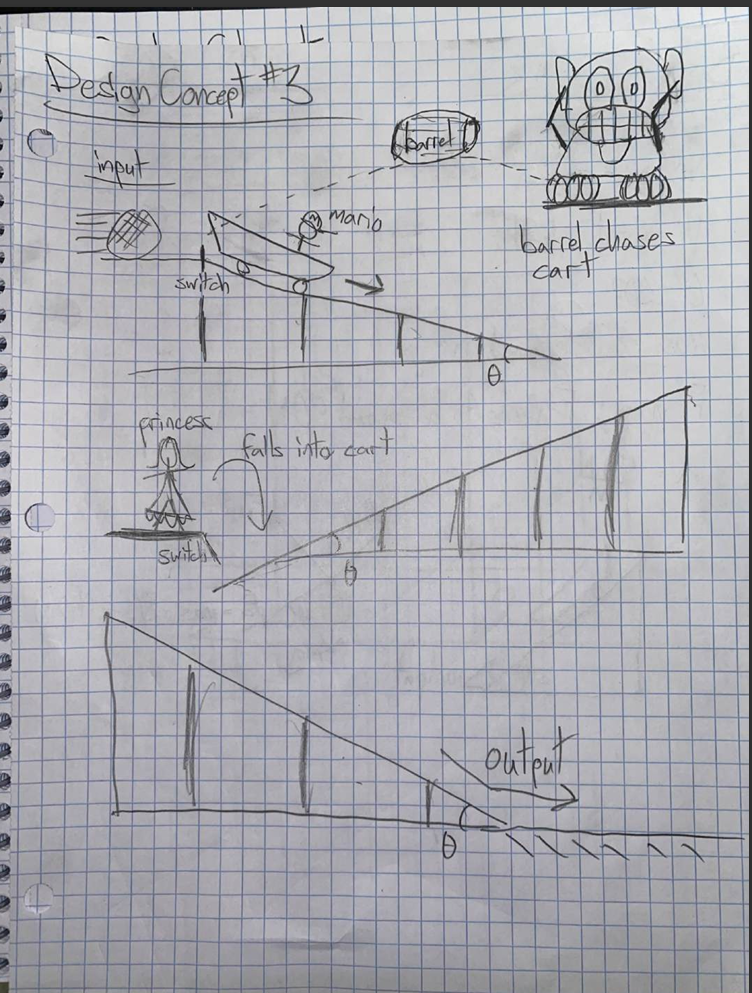 Design Concept #3
input
barrel
Mario
switch
barrel chases
cart
θ
princess
falls into cart
switch
θ
output
θ